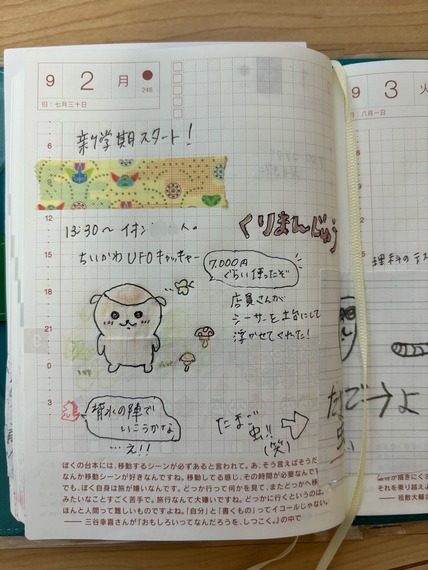 9 2 月
246
旧:七月三十日
新学期スタート!
6
9
12
13:30〜 イオン 人。
くりまんじゅう
15
ちいかわ UFOキャッチャー
7,000円
ぐらい使ったぞ
18
店員さんが
シーサーを土台にして
浮かせてくれた!
21
0
3
背水の陣で
いこうかな
…え!!
たまご
虫!!
(笑)
ぼくの台本には、移動するシーンが必ずあると言われて。あ、そう言えばそうだ
なんか移動シーンが好きなんですね。移動してる感じ、その時間が必要なんで
でも、ぼく自身は旅が嫌いなんです。どっか行って何かを見て、またどっかへ移
みたいなことすごく苦手で。旅行なんて大嫌いですね。どっかに行くというのは、
ほんと人間って難しいものですよね。「自分」と「書くもの」ってイコールじゃない。
三谷幸喜さんが『おもしろいってなんだろうを、しつこく。』の中で
9 3 火
旧:八月一日
6
9
12
15
理科のテス
18
21
0
3
たまご→よ
虫